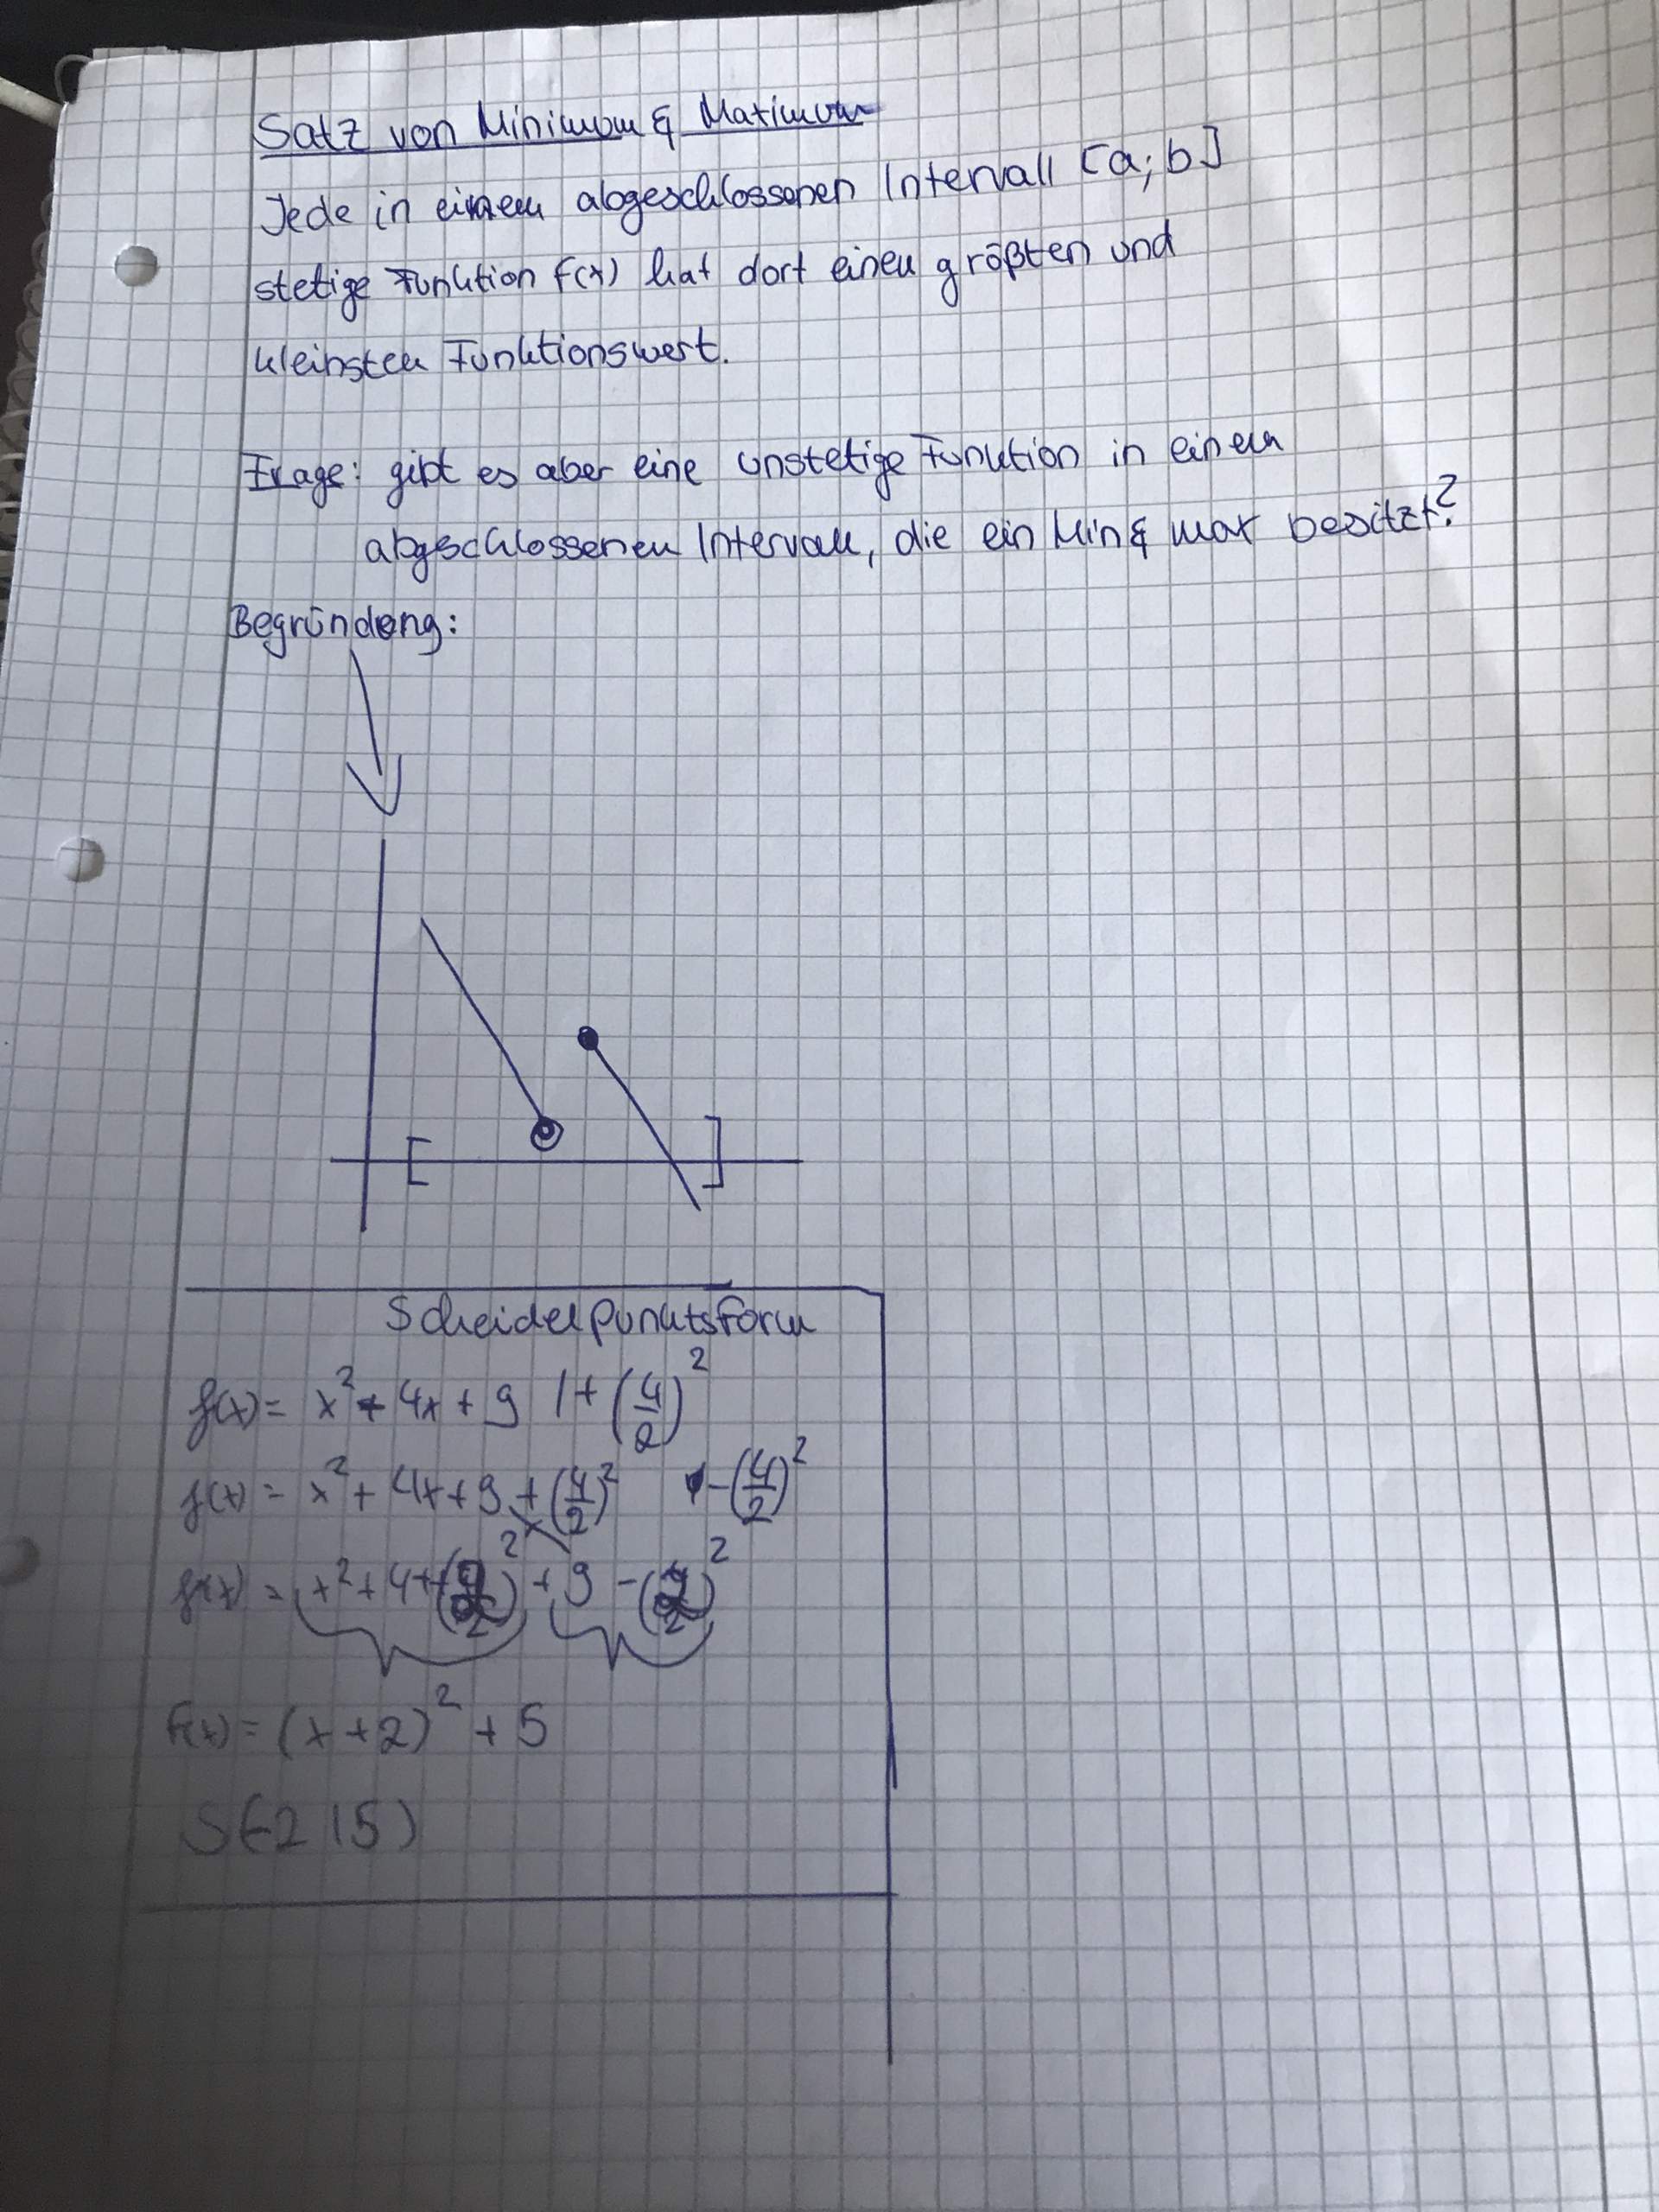 Satz von Minimum & Maximum
Jede in einem abgeschlossenen Intervall [a; b]
stetige Funktion f(x) hat dort einen größten und
kleinsten Funktionswert.
Frage: gibt es aber eine unstetige Funktion in einem
abgeschlossenen Intervall, die ein Min & max besitzt?
Begründung:
[ ]
Scheidelpunktsform
f(x) = x² + 4x + 9 |+ (4/2)²
f(x) = x² + 4x + 9 + (4/2)² - (4/2)²
f(x) = x² + 4x + (4/2)² + 9 - (4/2)²
f(x) = (x + 2)² + 5
S(-2 | 5)